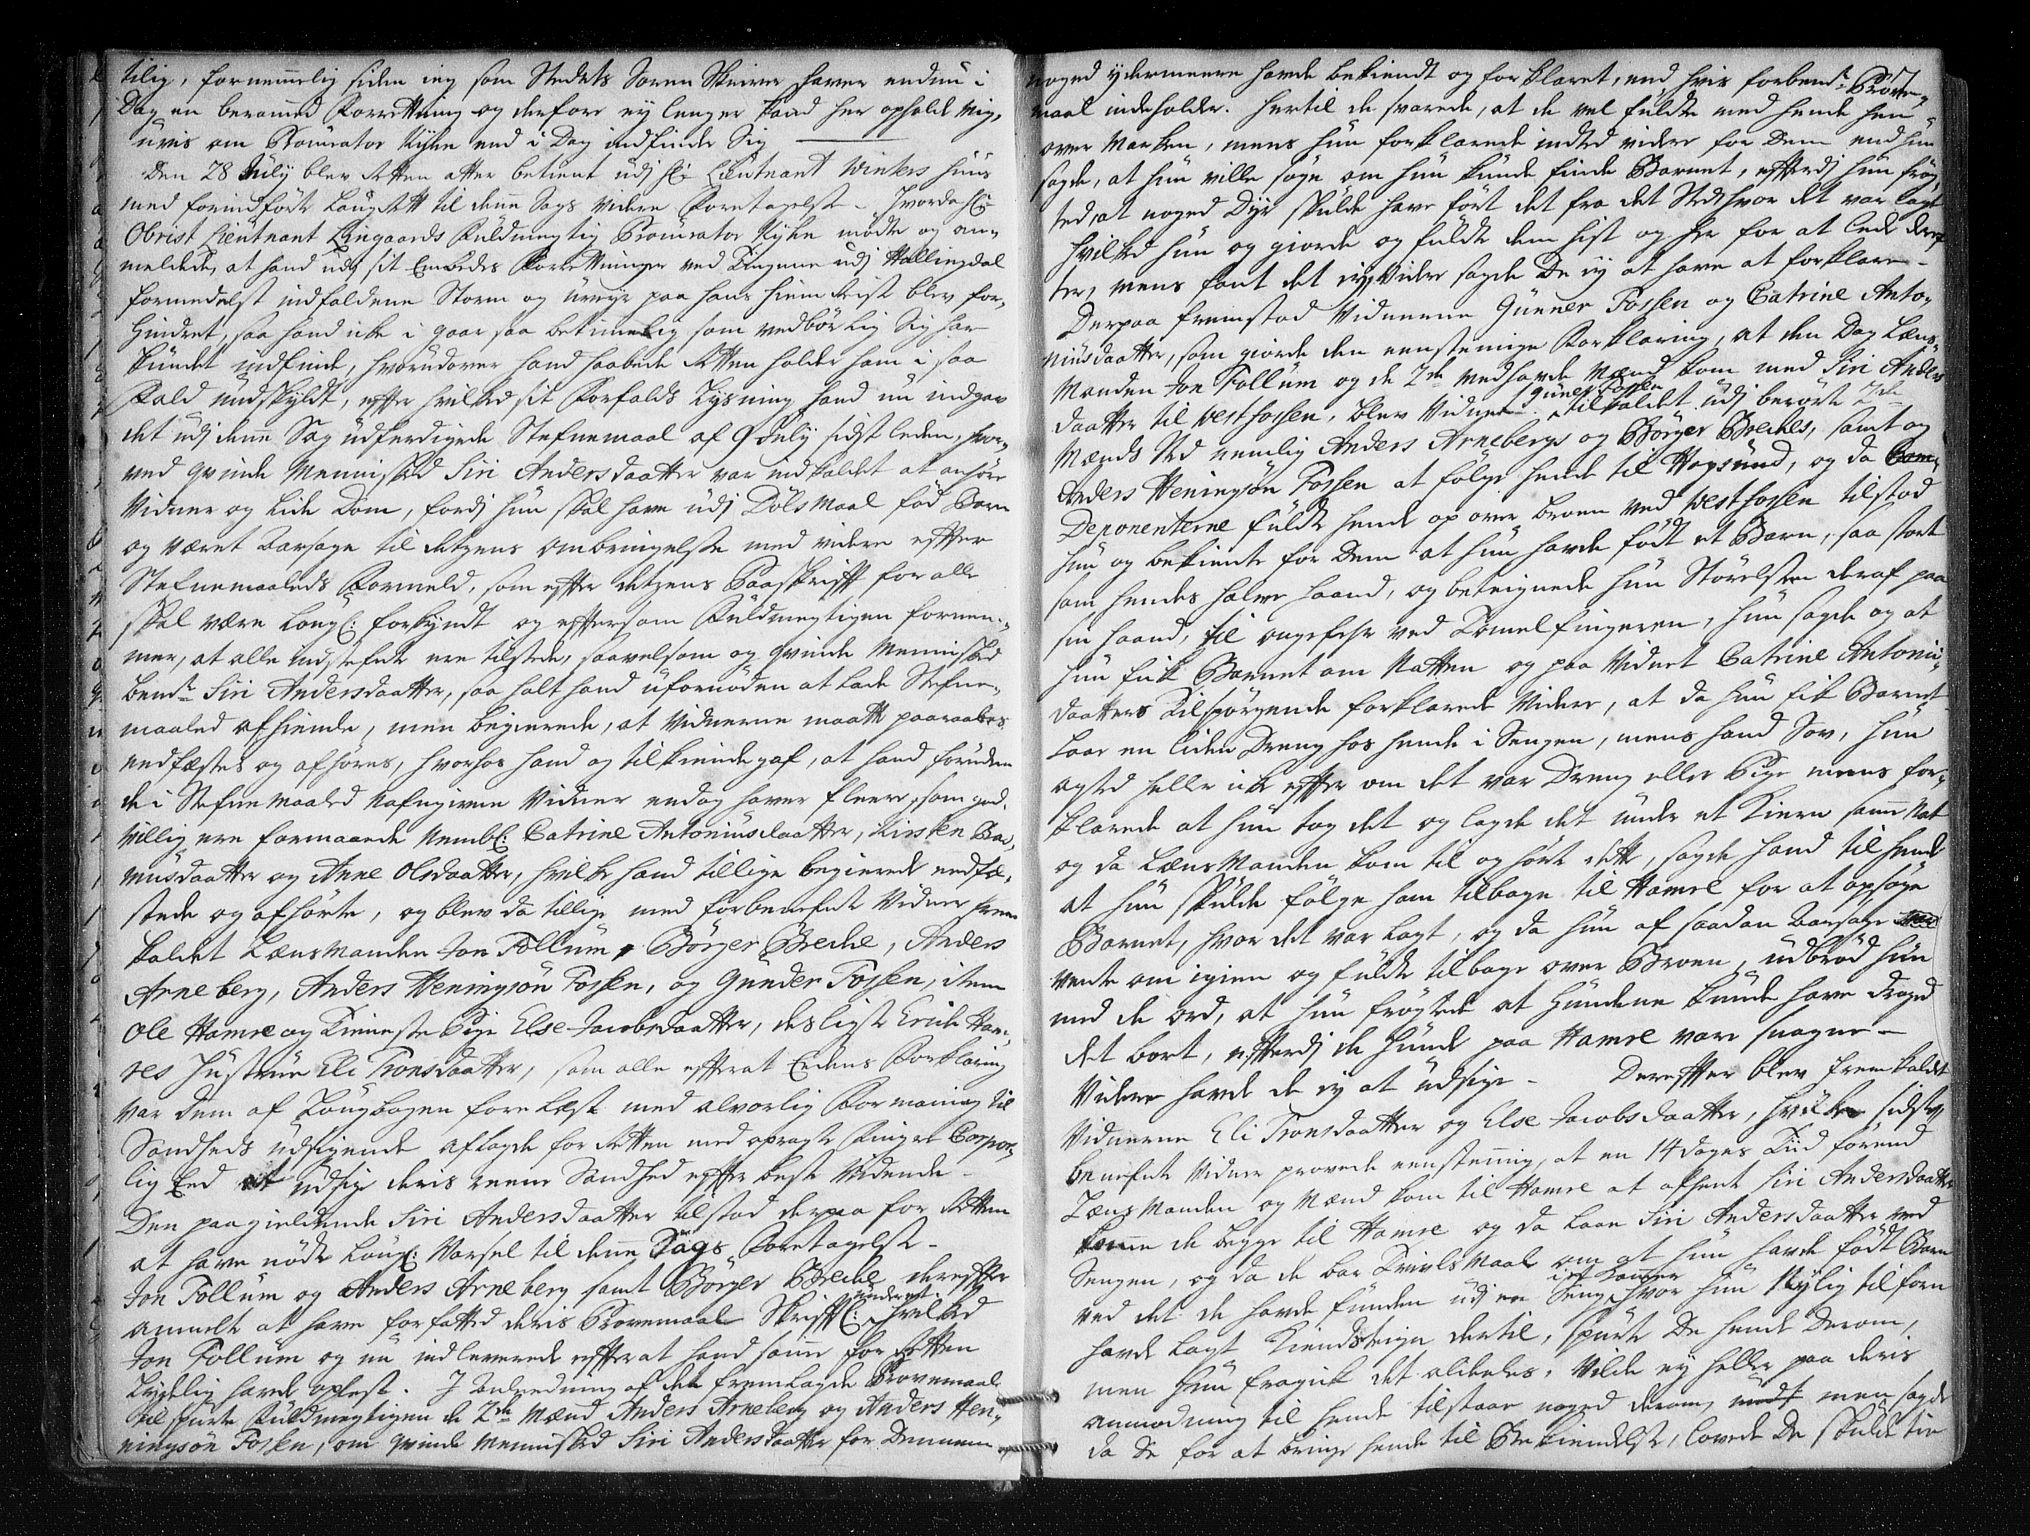 tilig, fornemmelig siden ieg som Stedets Soren Skriver haver endnu i
Dag en berammed Forretning og derfore ey lenger kand her opholde mig,
uvis om Procurator Kyhn end i Dag indfinder Sig
Den 28 July blev Retten atter betient udj Hr Lieutnant Winters Huus
med forindførte Laugrett til denne Sags videre Foretagelse. Hvorda Hr
Obrist Lieutnant Lingaards Fuldmegtig Procurator Kyhn mødte og an-
meldede, at hand udj sit Embedes Forretninger ved Tingene udj Hallingdal
formedelst indfaldene Storm og Uveyr paa hans Hiem Reise blev for-
hindret, saa hand icke i gaar saa betimelig som vedbørlig Sig har
kundet indfinde, hvorudover hand haabede Retten holder ham i saa
Fald undskyldt, effter hvilked sit Forfalds Lysning hand nu indgav
det udj denne Sag udferdigede Stefnemaal af 9 July sidst leden, hvor-
ved qvinde Mennisked Siri Andersdaatter var indkaldet at anhøre
Vidner og lide Dom, fordj hun skal have udj Dølsmaal fød Barn
og været aarsage til detzens ombringelse med videre effter
Stefnemaaleds Formeld, som effter detzens Paaskrifft for alle
skal være Laugl: forkyndt og efftersom Fuldmegtigen fornem-
mer, at alle indstefnte ere tilstede, saavelsom og qvinde Mennisked
bemte Siri Andersdaatter, saa holt hand ufornøden at lade Stefne-
maaled afhiemle, men begierede, at Vidnerne maatte paaraabes
eedfæstes og afhøres, hvorhos hand og tilkiende gaf, at hand foruden
de i Stefnemaaled Nafngivne Vidner endog haver fleere, som god-
villig ere formaaede Nembl: Catrine Antoniusdaatter, Kirsten Ras-
musdaatter og Anne Olsdaatter, hvilke hand tillige begierede eedfæ-
stede og afhørte, og blev da tillige med forbenefnte Vidner frem
kaldet Lænsmanden Jon Follum, Børger Breche, Anders
Arneberg, Anders Heningsøn Fossen, og Gunder Fossen, item
Ole Hamre og tieneste Pige Else Jacobsdaatter, desligste Erich Ham-
res Hustrue Eli Tronsdaatter, som alle effterat Eedens Forklaring
var dem af Laugbogen forelæst med alvorlig Formaning til
Sandheds udsigende aflagde for Retten med opragte Finger Corpor-
lig Eed at udsige deris reene Sandhed effter beste Vidende
Den paagieldende Siri Andersdaatter tilstod derpaa for Retten
at have nødt Laugl: Varsel til denne Sags Foretagelse
Jon Follum og Anders Arneberg samt Børger Breche dereffter
anmelte at have forfatted deris Provemaal Skrifftl: hvilked
Jon Follum og nu indleverede effterat hand samme for Retten
lydelig havde oplest. I Anledning af det fremlagde Provemaal
tilspurte Fuldmegtigen de 2de Mænd Anders Arneberg og Anders Hen-
ningsøn Fossen, om qvinde Mennisked Siri Andersdaatter for Dennem
noged ydermeere havde bekiendt og forklaret, end hvis forbemte Prove-
maal indeholder. Hertil de svarede, at de vel fulde med hende hen
over Marken, mens hun forklarede indted videre for Dem end hun
sagde, at hun ville søge om hun kunde finde Barnet, effterdj hun frøg-
ted, at noged Dyr skulde have ført det fra det Sted hvor det var lagt
hvilked hun og giorde og fuldte dem hist og her for at lede dereff-
ter, mens fant det ey. Videre sagde De ey at have at forklare
Derpaa fremstod Vidnerne Gunner Fossen og Catrine Anto-
niusdaatter, som giorde den eenstemmige Forklaring, at den Dag Læns-
manden Jon Follum og de 2de medhavde Mænd kom med Siri Anders
daatter til Vestfossen, blev Vidnet Guner Fossen tilkaldet udj berørte 2de
Mænds Sted nemlig Anders Arnebergs og Børger Breches, samt og
Anders Heningsøn Fossen at følge hende til Hogsund, og da
Deponenterne fuldte hende op over Broen ved Vestfossen tilstod
hun og bekiendte for Dem at hun havde født et Barn, saa stort
som hendes halve Haand, og beteignede hun Størelsen deraf paa
sin Haand, til ongefehr ved Tommelfingeren, hun sagde og at
hun fik Barnet om Natten og paa Vidnet Catrine Antonii-
daatters Tilspørgende forklarede Videre, at da hun fik Barnet
laae en liden Dreng hos hende i Sengen, mens hand Sov, hun
agted heller icke effter om det var Dreng eller Pige mens for-
klarede at hun tog det og lagde det under et Kierr samme Nat
og da Lænsmanden kom til og hørte dette, sagde hand til hende
at hun skulde følge ham tilbage til Hamre for at opsøge
Barnet, hvor det var lagt, og da hun af saadan aarsage
vente om igien og fuldte tilbage over Broen, udbrød hun
med de ord, at hun frøgtede at Hundene kunde have draged
det bort, effterdj de Hunde paa Hamre vare snogne
Videre havde de ey at udsige. Dereffter blev fremkaldet
Vidnerne Eli Tronsdaatter og Else Jacobsdaatter, hvilke sidst
benefnte Vidner provede eenstemmig, at en 14 dages Tiid førend
Lænsmanden og Mænd kom til Hamre at afhente Siri Andersdaatter
komme de begge til Hamre og da laae Siri Andersdaatter ved
Sengen, og da de bar Tvivlsmaal om at hun havde født Barn
ved det de havde funden udj en Seng i et Kammer hvor hun Nylig tilforn
havde lagt Kiendeteign dertil, spurte De hende Derom,
men hun fragick det aldeles, vilde ey heller paa deris
anmodning til hende tilstaae noged derom, men sagde
da De for at bringe hende til Bekiendelse, lovede De skulde tie